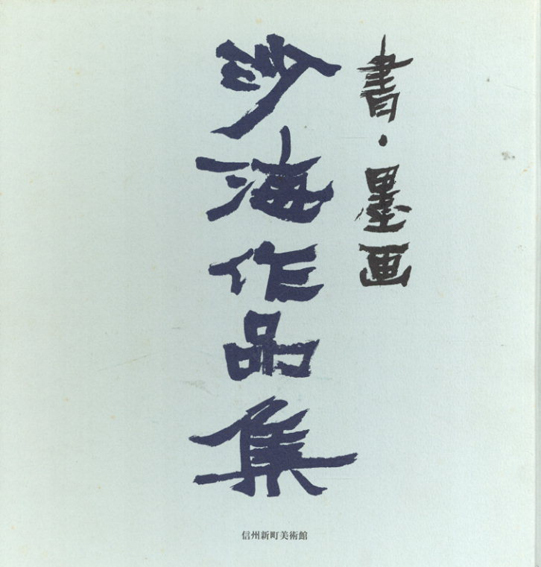 書・墨画
沙海作品集
信州新町美術館